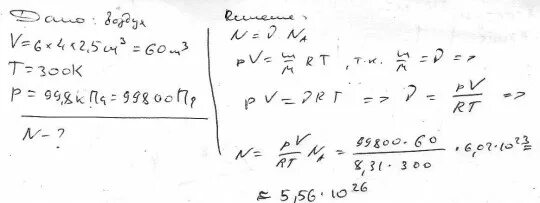 Дано: воздух
V = 6 × 4 × 2,5 см³ = 60 м³
T = 300К
P = 99,8 кПа = 99800 Па
N - ?
Решение:
N = ν N_A
pV = m/M RT, т.к. m/M = ν =>
pV = νRT => ν = pV/RT =>
N = pV/RT N_A = 99800 · 60 / 8,31 · 300 · 6,02 · 10²³ =
= 5,56 · 10²⁶